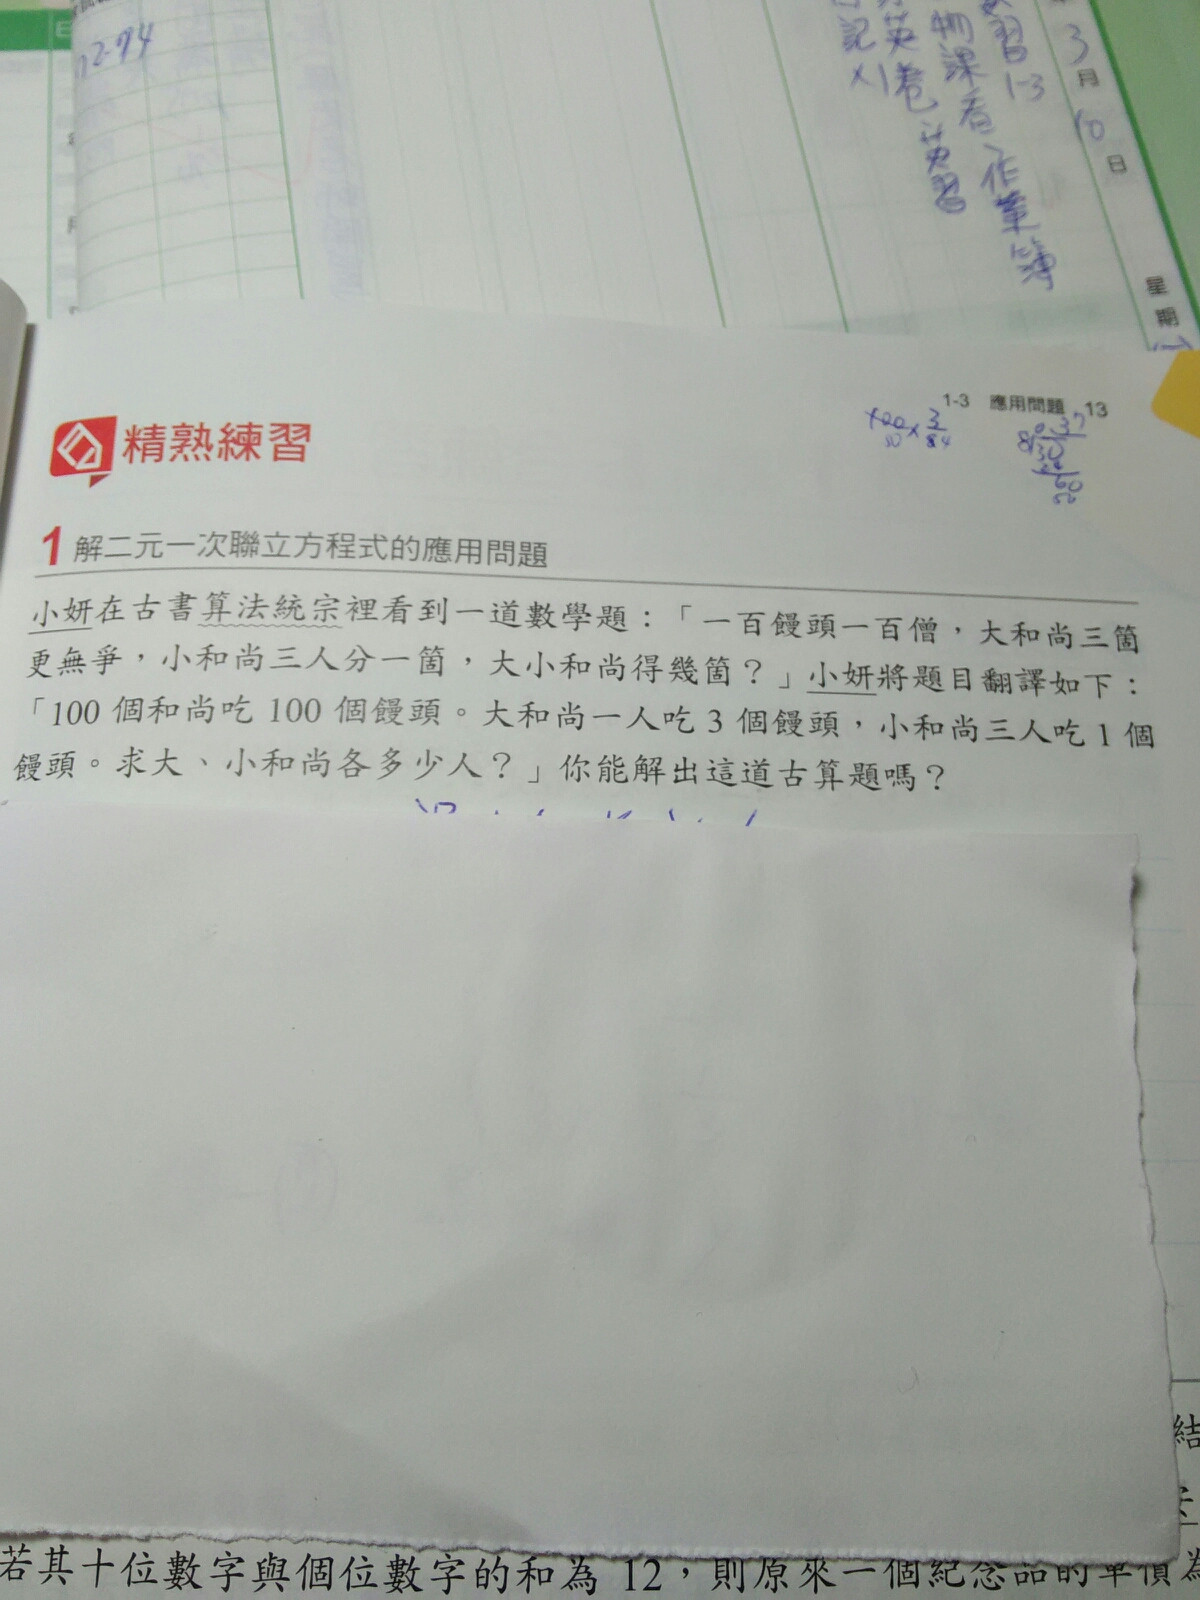 3月10日
星期
習1-3
物課卷、作業簿
英卷、英習
記×1
2-94
1-3 應用問題 13
精熟練習
1 解二元一次聯立方程式的應用問題
小妍在古書算法統宗裡看到一道數學題：「一百饅頭一百僧，大和尚三箇
更無爭，小和尚三人分一箇，大小和尚得幾箇？」小妍將題目翻譯如下：
「100 個和尚吃 100 個饅頭。大和尚一人吃 3 個饅頭，小和尚三人吃 1 個
饅頭。求大、小和尚各多少人？」你能解出這道古算題嗎？
結
若其十位數字與個位數字的和為 12，則原來一個紀念品的單價為